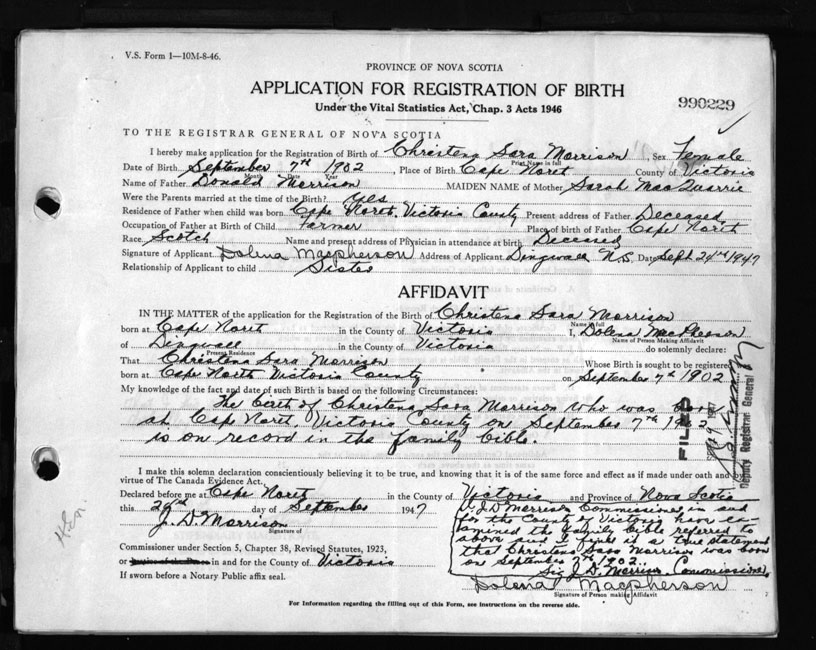 V.S. Form 1—10M-8-46.
PROVINCE OF NOVA SCOTIA
APPLICATION FOR REGISTRATION OF BIRTH
Under the Vital Statistics Act, Chap. 3 Acts 1946
990229
TO THE REGISTRAR GENERAL OF NOVA SCOTIA
I hereby make application for the Registration of Birth of Christena Sara Morrison, Sex Female
Print Name in full
Date of Birth September 7th 1902, Place of Birth Cape North County of Victoria
Month Date Year
Name of Father Donald Morrison MAIDEN NAME of Mother Sarah MacQuarrie
Were the Parents married at the time of the Birth? Yes
Residence of Father when child was born Cape North, Victoria County Present address of Father Deceased
Occupation of Father at Birth of Child Farmer Place of birth of Father Cape North
Race Scotch Name and present address of Physician in attendance at birth Deceased
Signature of Applicant Dolena Macpherson Address of Applicant Dingwall N.S. Date Sept 24th 1947
Relationship of Applicant to child Sister
AFFIDAVIT
IN THE MATTER of the application for the Registration of the Birth of Christena Sara Morrison
Name in full
born at Cape North in the County of Victoria I, Dolena MacPherson
Name of Person Making Affidavit
of Dingwall in the County of Victoria do solemnly declare:
Present Residence
That Christena Sara Morrison Whose Birth is sought to be registered
born at Cape North Victoria County on September 7th 1902
My knowledge of the fact and date of such Birth is based on the following Circumstances:
The birth of Christena Sara Morrison who was born
at Cape North, Victoria County on September 7th 1902
is on record in the family bible.
FILED
Deputy Registrar General
I make this solemn declaration conscientiously believing it to be true, and knowing that it is of the same force and effect as if made under oath and by
virtue of The Canada Evidence Act.
Declared before me at Cape North in the County of Victoria and Province of Nova Scotia
this 24th day of September 1947
J. D. Morrison
Signature of
Commissioner under Section 5, Chapter 38, Revised Statutes, 1923,
or in and for the County of Victoria
If sworn before a Notary Public affix seal.
I, J. D. Morrison Commissioner in and
for the County of Victoria have ex-
amined the family bible referred to
above and I find it is a true statement
that Christena Sara Morrison was born
on September 7th 1902.
Sig J. D. Morrison Commissioner
Dolena Macpherson
Signature of Person making Affidavit
For Information regarding the filling out of this Form, see instructions on the reverse side.